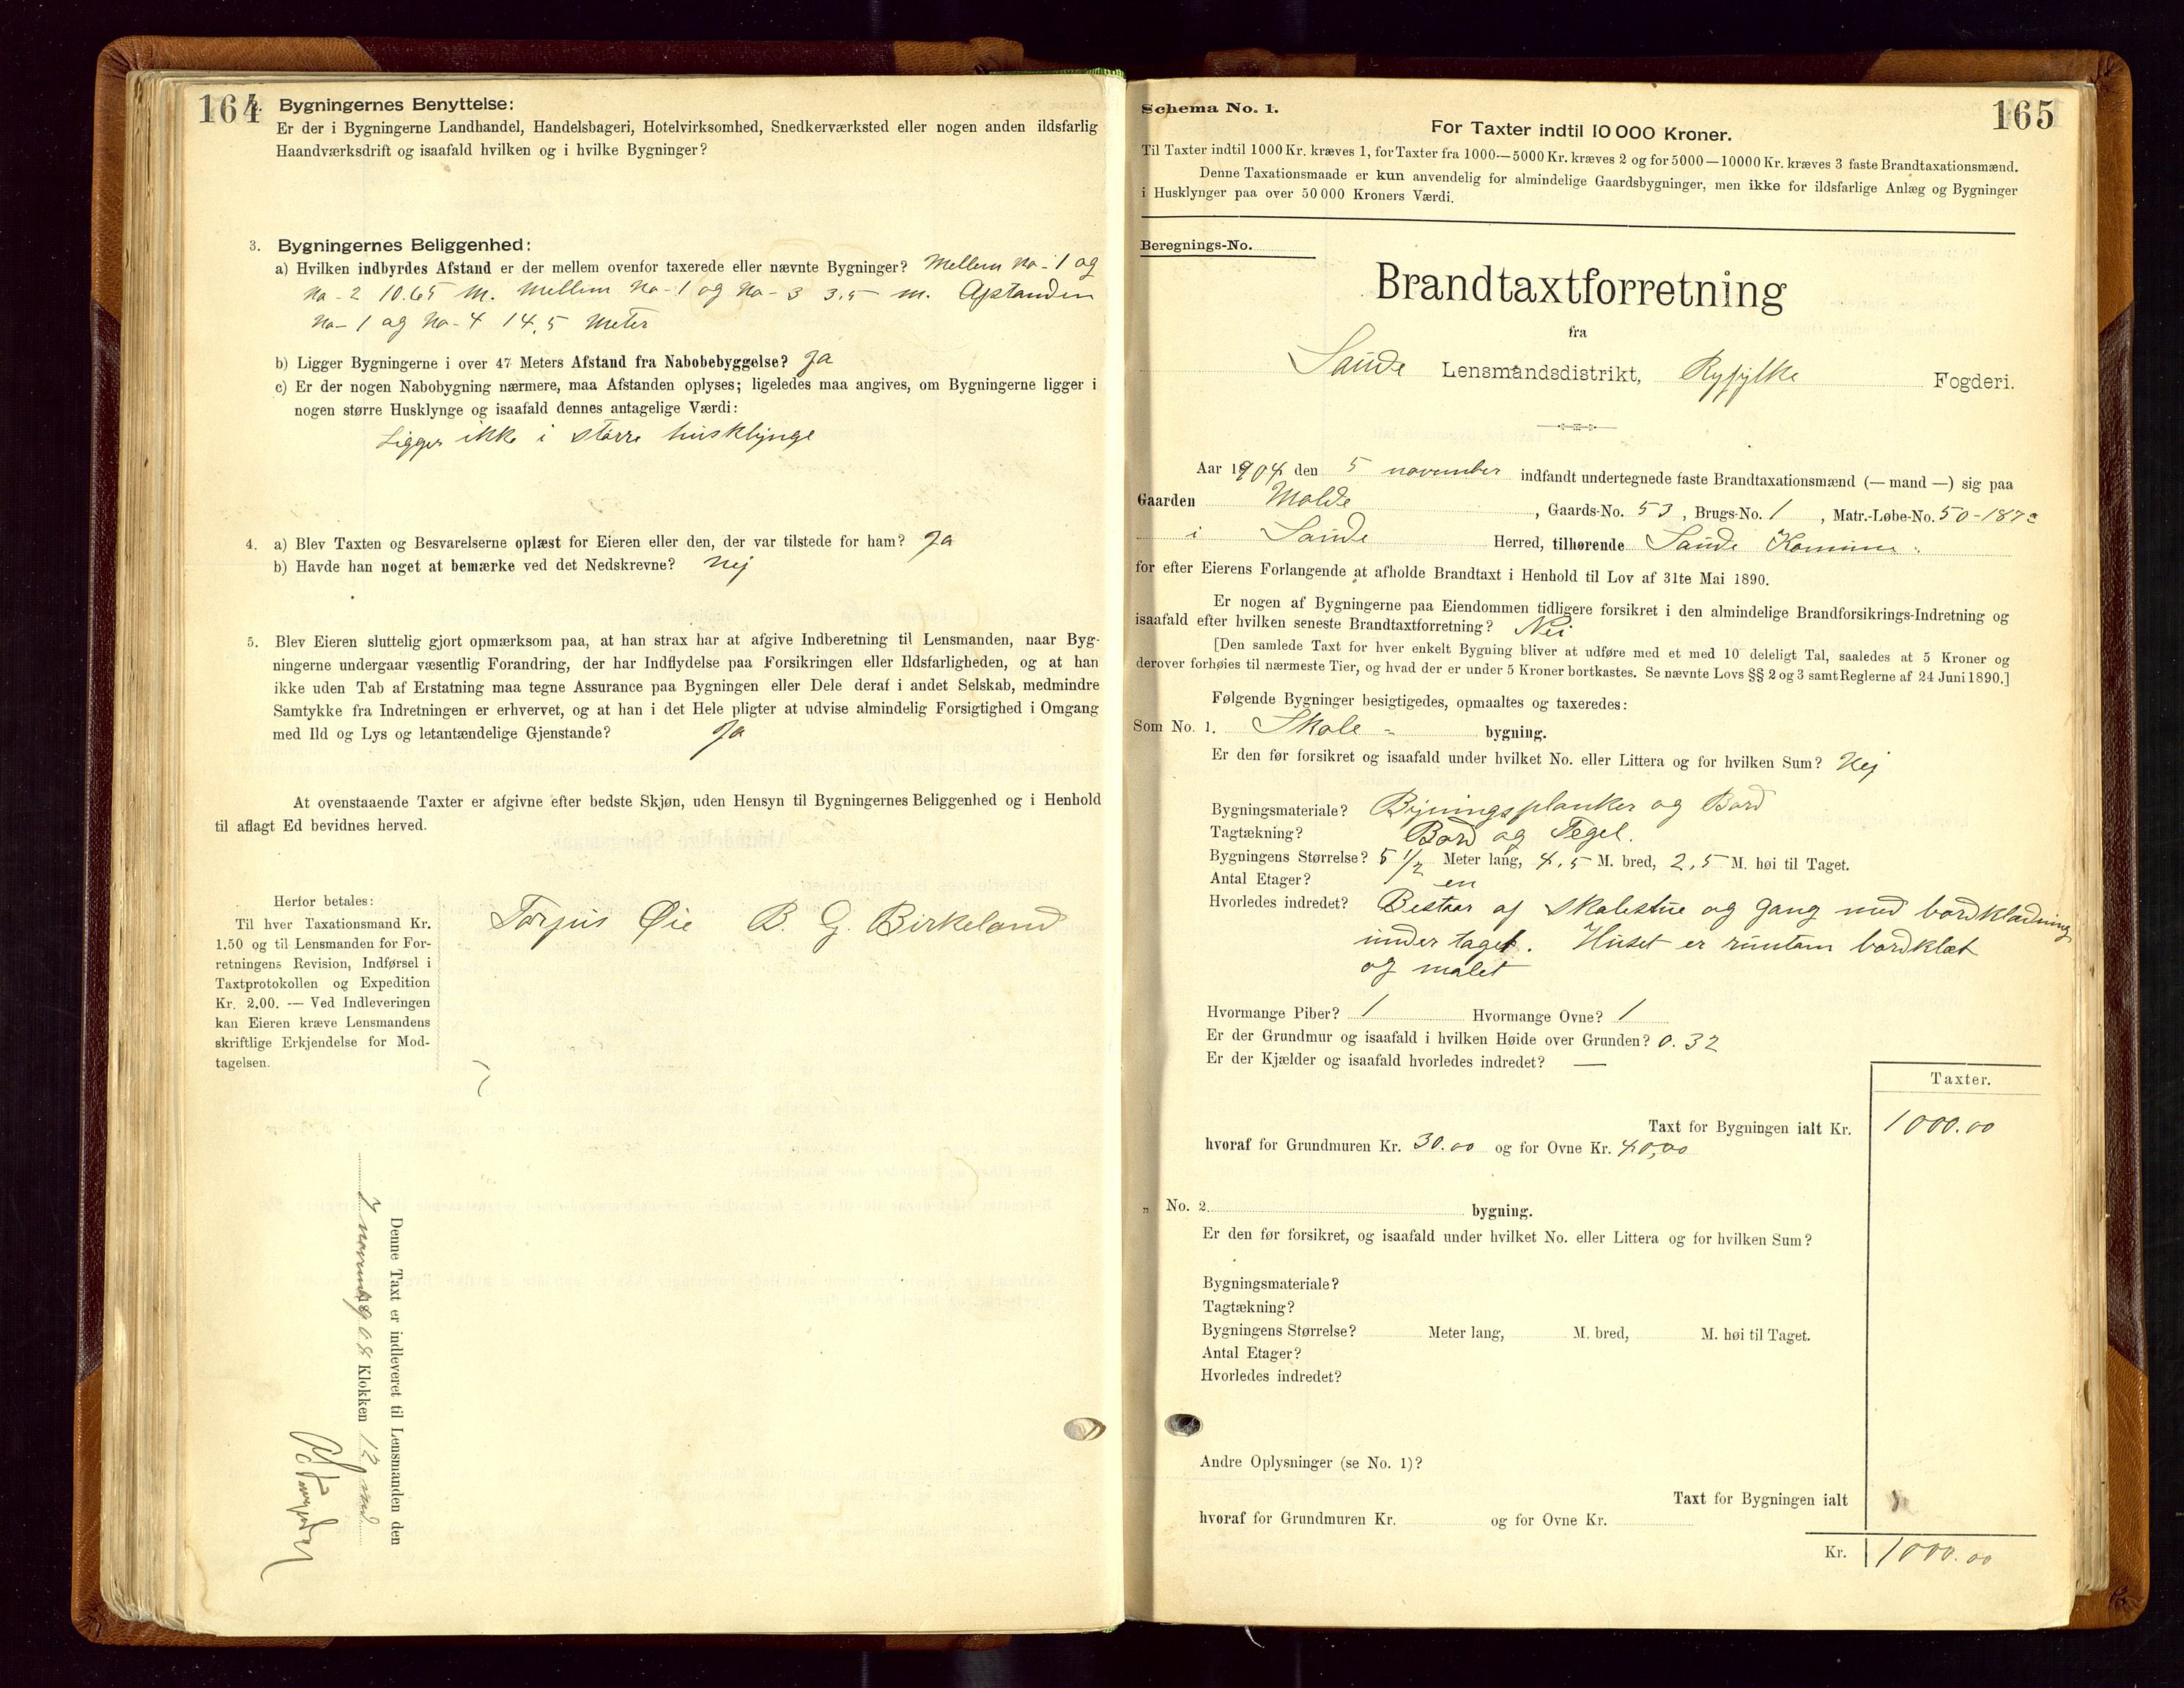 164
2. Bygningernes Benyttelse:
Er der i Bygningerne Landhandel, Handelsbageri, Hotelvirksomhed, Snedkerværksted eller nogen anden ildsfarlig
Haandværksdrift og isaafald hvilken og i hvilke Bygninger?
3. Bygningernes Beliggenhed:
a) Hvilken indbyrdes Afstand er der mellem ovenfor taxerede eller nævnte Bygninger? Mellem No-1 og
No-2 10.65 M. Mellem No-1 og No-3 3,5 m. Afstanden
No-1 og No-4 14,5 Meter
b) Ligger Bygningerne i over 47 Meters Afstand fra Nabobebyggelse? Ja
c) Er der nogen Nabobygning nærmere, maa Afstanden oplyses; ligeledes maa angives, om Bygningerne ligger i
nogen større Husklynge og isaafald dennes antagelige Værdi:
Ligger ikke i større husklynge
4. a) Blev Taxten og Besvarelserne oplæst for Eieren eller den, der var tilstede for ham? Ja
b) Havde han noget at bemærke ved det Nedskrevne? Nej
5. Blev Eieren sluttelig gjort opmærksom paa, at han strax har at afgive Indberetning til Lensmanden, naar Byg-
ningerne undergaar væsentlig Forandring, der har Indflydelse paa Forsikringen eller Ildsfarligheden, og at han
ikke uden Tab af Erstatning maa tegne Assurance paa Bygningen eller Dele deraf i andet Selskab, medmindre
Samtykke fra Indretningen er erhvervet, og at han i det Hele pligter at udvise almindelig Forsigtighed i Omgang
med Ild og Lys og letantændelige Gjenstande? Ja
At ovenstaaende Taxter er afgivne efter bedste Skjøn, uden Hensyn til Bygningernes Beliggenhed og i Henhold
til aflagt Ed bevidnes herved.
Herfor betales:
Til hver Taxationsmand Kr.
1.50 og til Lensmanden for For-
retningens Revision, Indførsel i
Taxtprotokollen og Expedition
Kr. 2.00. — Ved Indleveringen
kan Eieren kræve Lensmandens
skriftlige Erkjendelse for Mod-
tagelsen.
Torjus Øie B. G. Birkeland
Denne Taxt er indleveret til Lensmanden den
7 novemb 1904 Klokken 12 md
165
Schema No. 1.
For Taxter indtil 10 000 Kroner.
Til Taxter indtil 1000 Kr. kræves 1, for Taxter fra 1000—5000 Kr. kræves 2 og for 5000—10000 Kr. kræves 3 faste Brandtaxationsmænd.
Denne Taxationsmaade er kun anvendelig for almindelige Gaardsbygninger, men ikke for ildsfarlige Anlæg og Bygninger
i Husklynger paa over 50 000 Kroners Værdi.
Beregnings-No.
Brandtaxtforretning
fra
Saude Lensmandsdistrikt, Ryfylke Fogderi.
Aar 1904 den 5 november indfandt undertegnede faste Brandtaxationsmænd (— mand —) sig paa
Gaarden Molde, Gaards-No. 53, Brugs-No. 1, Matr.-Løbe-No. 50-187a
i Saude Herred, tilhørende Saude Kommune
for efter Eierens Forlangende at afholde Brandtaxt i Henhold til Lov af 31te Mai 1890.
Er nogen af Bygningerne paa Eiendommen tidligere forsikret i den almindelige Brandforsikrings-Indretning og
isaafald efter hvilken seneste Brandtaxtforretning? Nei
[Den samlede Taxt for hver enkelt Bygning bliver at udføre med et med 10 deleligt Tal, saaledes at 5 Kroner og
derover forhøies til nærmeste Tier, og hvad der er under 5 Kroner bortkastes. Se nævnte Lovs §§ 2 og 3 samt Reglerne af 24 Juni 1890.]
Følgende Bygninger besigtigedes, opmaaltes og taxeredes:
Som No. 1. Skole - bygning.
Er den før forsikret og isaafald under hvilket No. eller Littera og for hvilken Sum? Nej
Bygningsmateriale? Bygningsplanker og Bord
Tagtækning? Bord og Tegel.
Bygningens Størrelse? 5 1/2 Meter lang, 4,5 M. bred, 2,5 M. høi til Taget.
Antal Etager? en
Hvorledes indredet? Bestaar af skolestue og gang med bordklædning
under taget. Huset er rundtom bordklæt
og malet
Hvormange Piber? 1 Hvormange Ovne? 1
Er der Grundmur og isaafald i hvilken Høide over Grunden? 0.32
Er der Kjælder og isaafald hvorledes indredet? —
Taxter.
Taxt for Bygningen ialt Kr. 1000.00
hvoraf for Grundmuren Kr. 30.00 og for Ovne Kr. 40,00
„ No. 2. bygning.
Er den før forsikret, og isaafald under hvilket No. eller Littera og for hvilken Sum?
Bygningsmateriale?
Tagtækning?
Bygningens Størrelse? Meter lang, M. bred, M. høi til Taget.
Antal Etager?
Hvorledes indredet?
Andre Oplysninger (se No. 1)?
Taxt for Bygningen ialt
hvoraf for Grundmuren Kr. og for Ovne Kr.
Kr. 1000.00